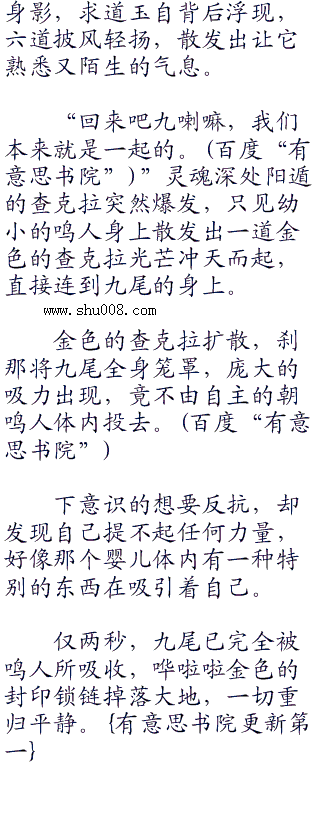 身影，求道玉自背后浮现，
六道披风轻扬，散发出让它
熟悉又陌生的气息。
“回来吧九喇嘛，我们
本来就是一起的。(百度“有
意思书院”)”灵魂深处阳遁
的查克拉突然爆发，只见幼
小的鸣人身上散发出一道金
色的查克拉光芒冲天而起，
直接连到九尾的身上。
www.shu008.com
金色的查克拉扩散，刹
那将九尾全身笼罩，庞大的
吸力出现，竟不由自主的朝
鸣人体内投去。(百度“有意
思书院”)
下意识的想要反抗，却
发现自己提不起任何力量，
好像那个婴儿体内有一种特
别的东西在吸引着自己。
仅两秒，九尾已完全被
鸣人所吸收，哗啦啦金色的
封印锁链掉落大地，一切重
归平静。{有意思书院更新第
一}